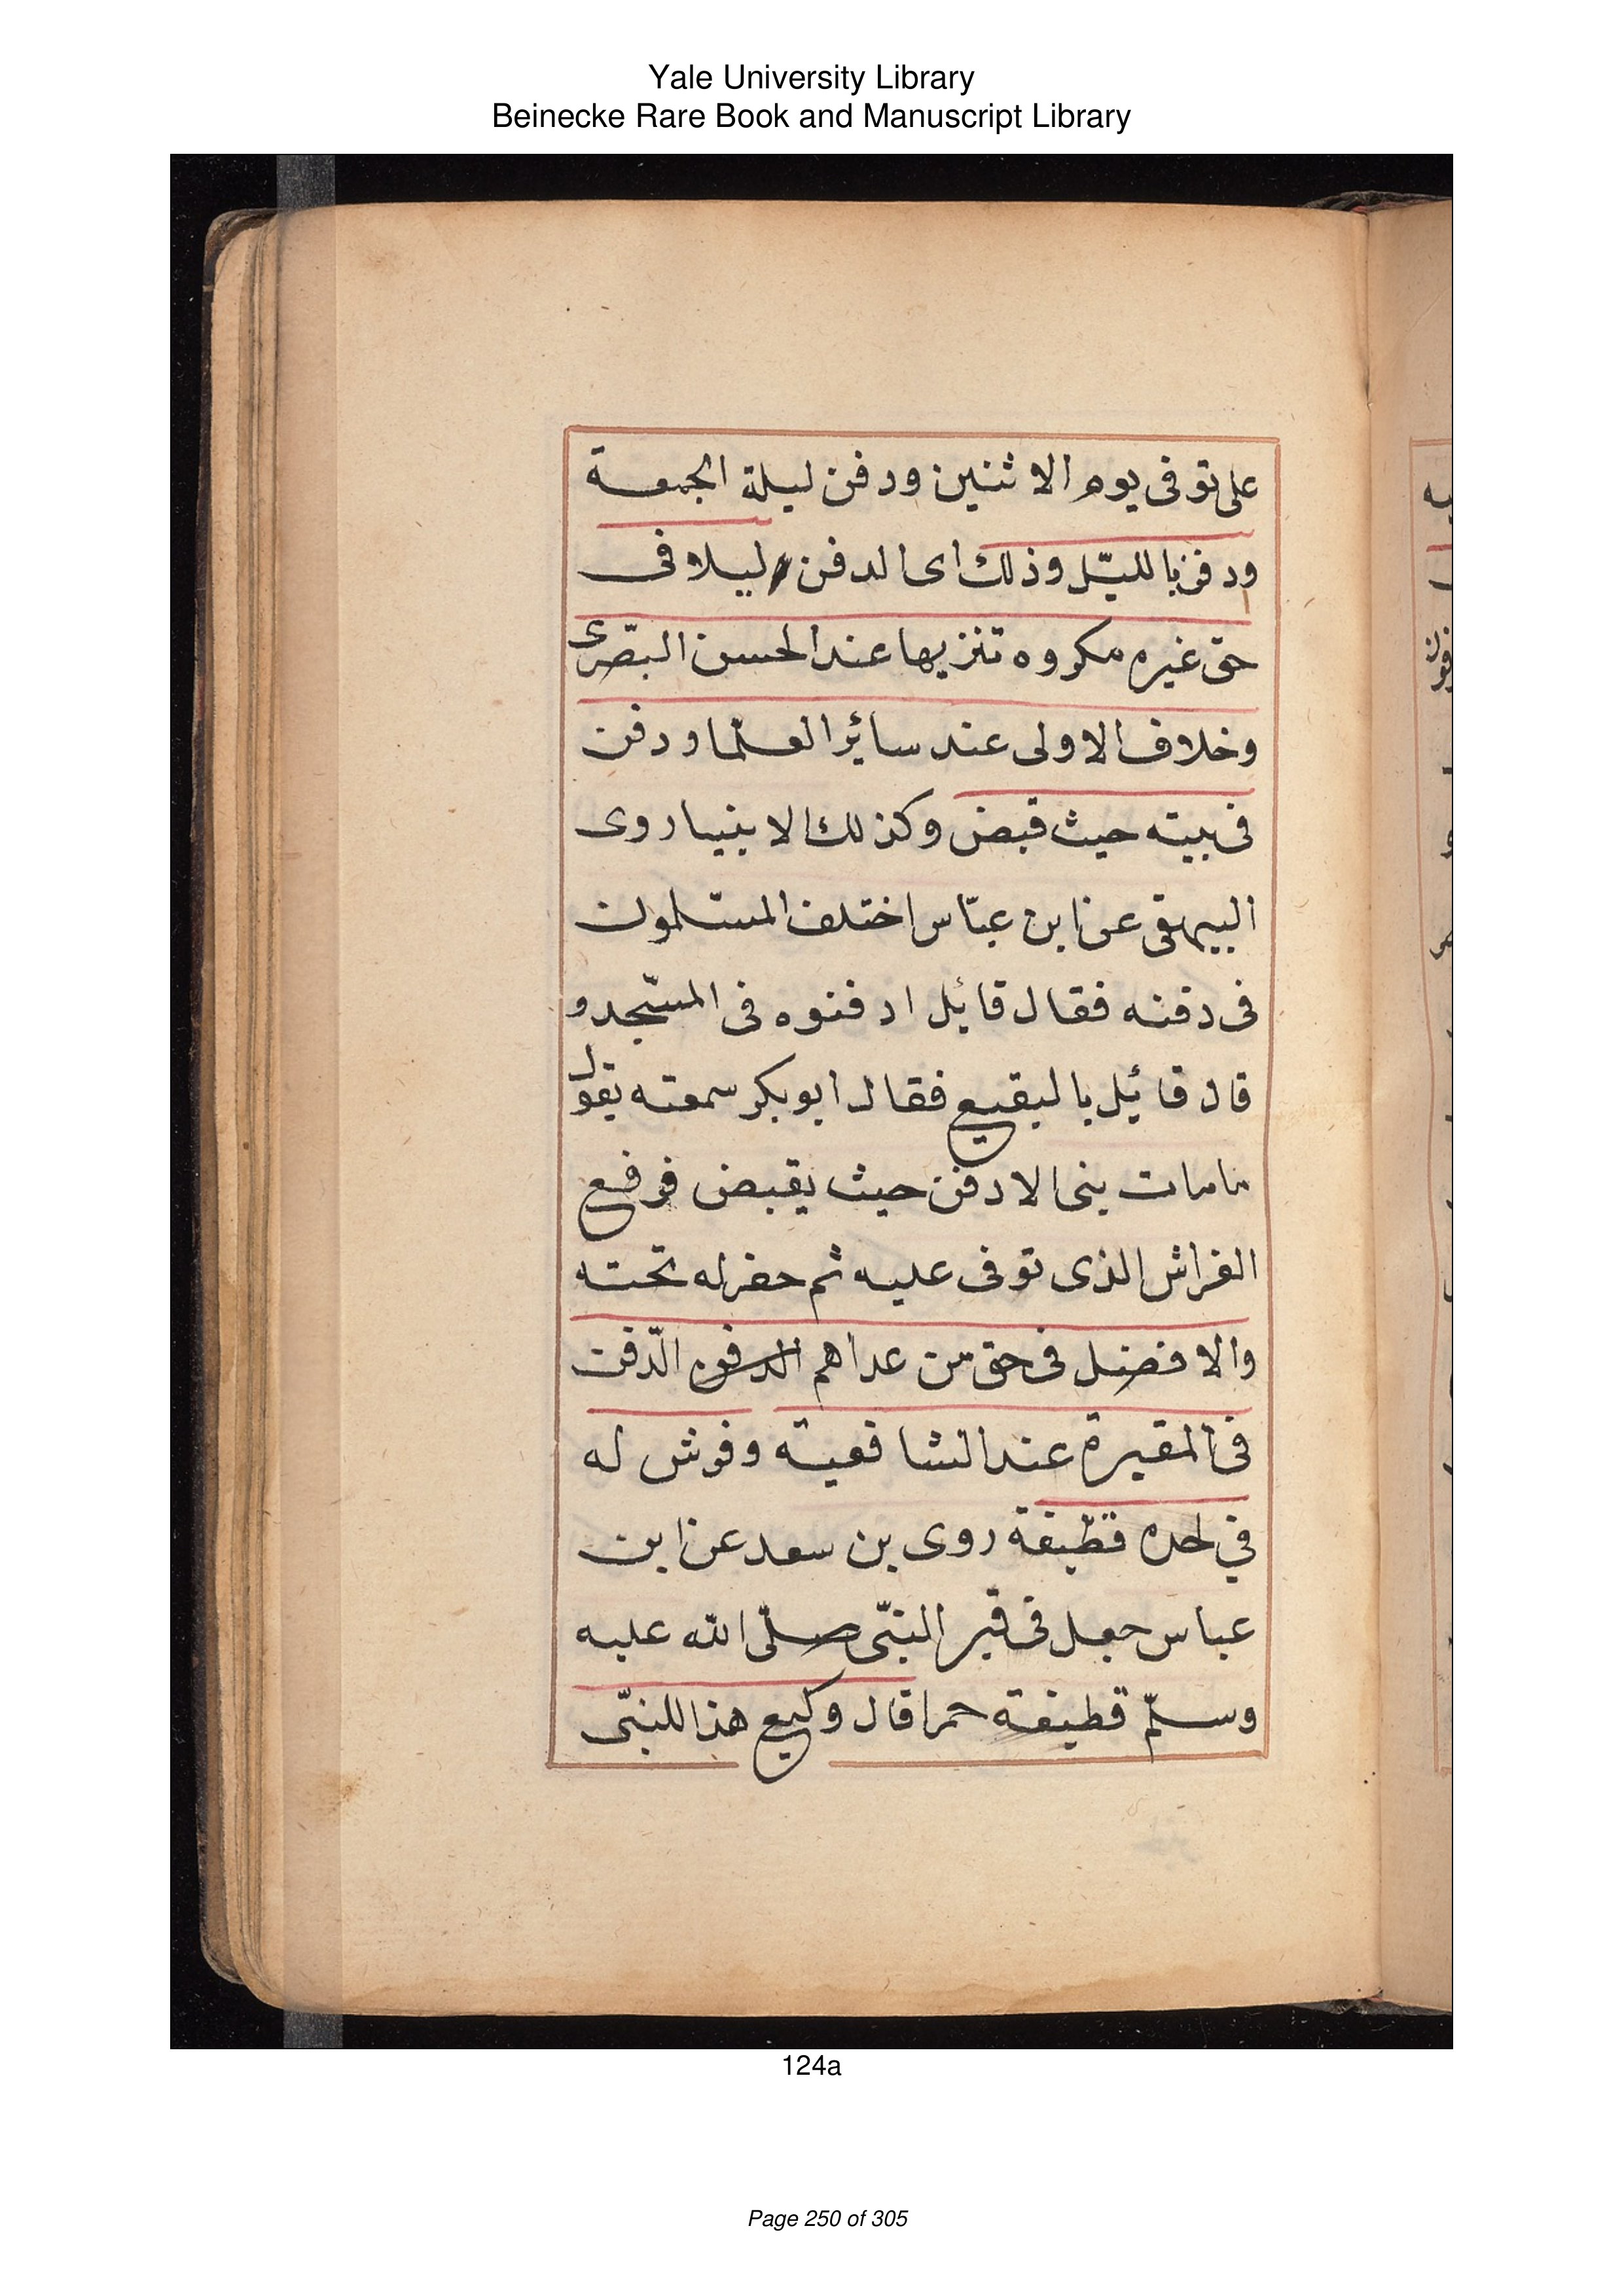 Yale University Library
Beinecke Rare Book and Manuscript Library
على توفى يوم الاثنين ودفن ليلة الجمعة
ودفن بالليّل وذلك اى الدفن ليلا فى
حق غيره مكروه تنزيها عند الحسن البصّرى
وخلاف الاولى عند سائر العلّما ودفن
فى بيته حيث قبض وكذلك الانبيا روى
البيهقى عن ابن عبّاس اختلف المسّلمون
فى دفنه فقال قائيل ادفنوه فى المسّجد و
قال قائيل بالبقيع فقال ابو بكر سمعته يقول
مامات نبى الا دفن حيث يقبض فرفع
الفراش الذى توفى عليه ثم حفر له تحته
والافضل فى حق من عداهم الدفن الّدفن
فى المقبرة عند الشافعيته وفرش له
في لحده قطّيفة روى بن سعد عن ابن
عباس جعل فى قبر النبّى صلّى الله عليه
وسلّم قطيفة حمرا قال وكيع هذا للنبّى
124a
Page 250 of 305